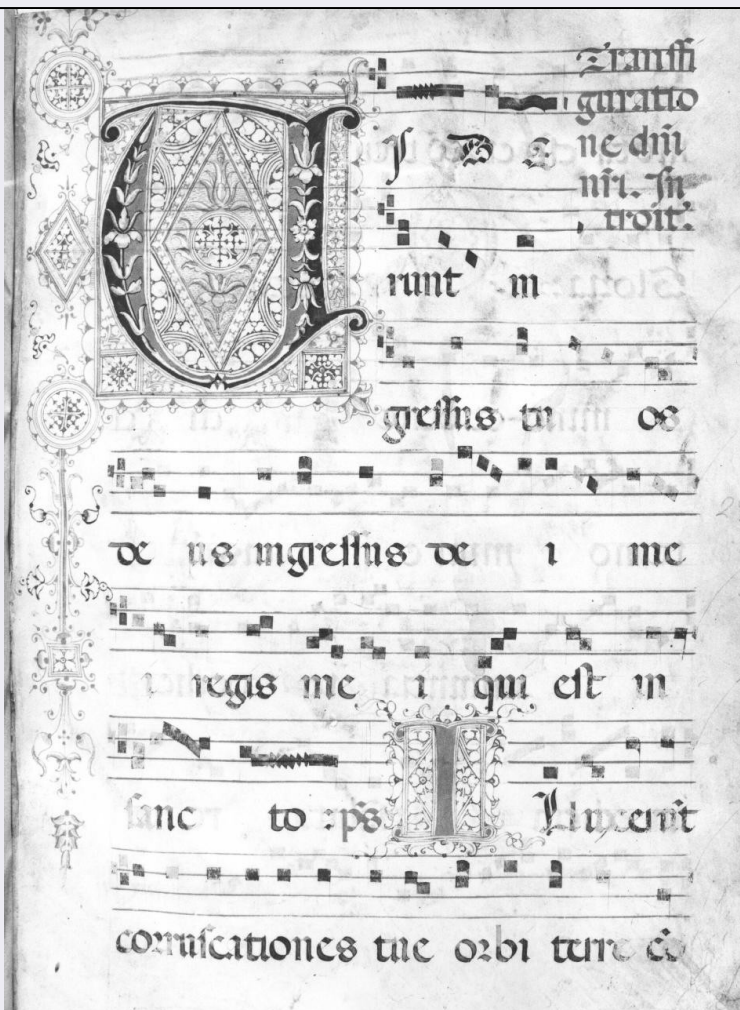 Transfi
guratio
ne dñi
nr̃i. In
troit.
VIDE
runt in
gressus tu os
de us ingressus de i me
i regis me i qui est in
sanc to : ps̃ Illuxerũt
corruscationes tue orbi terre cõ